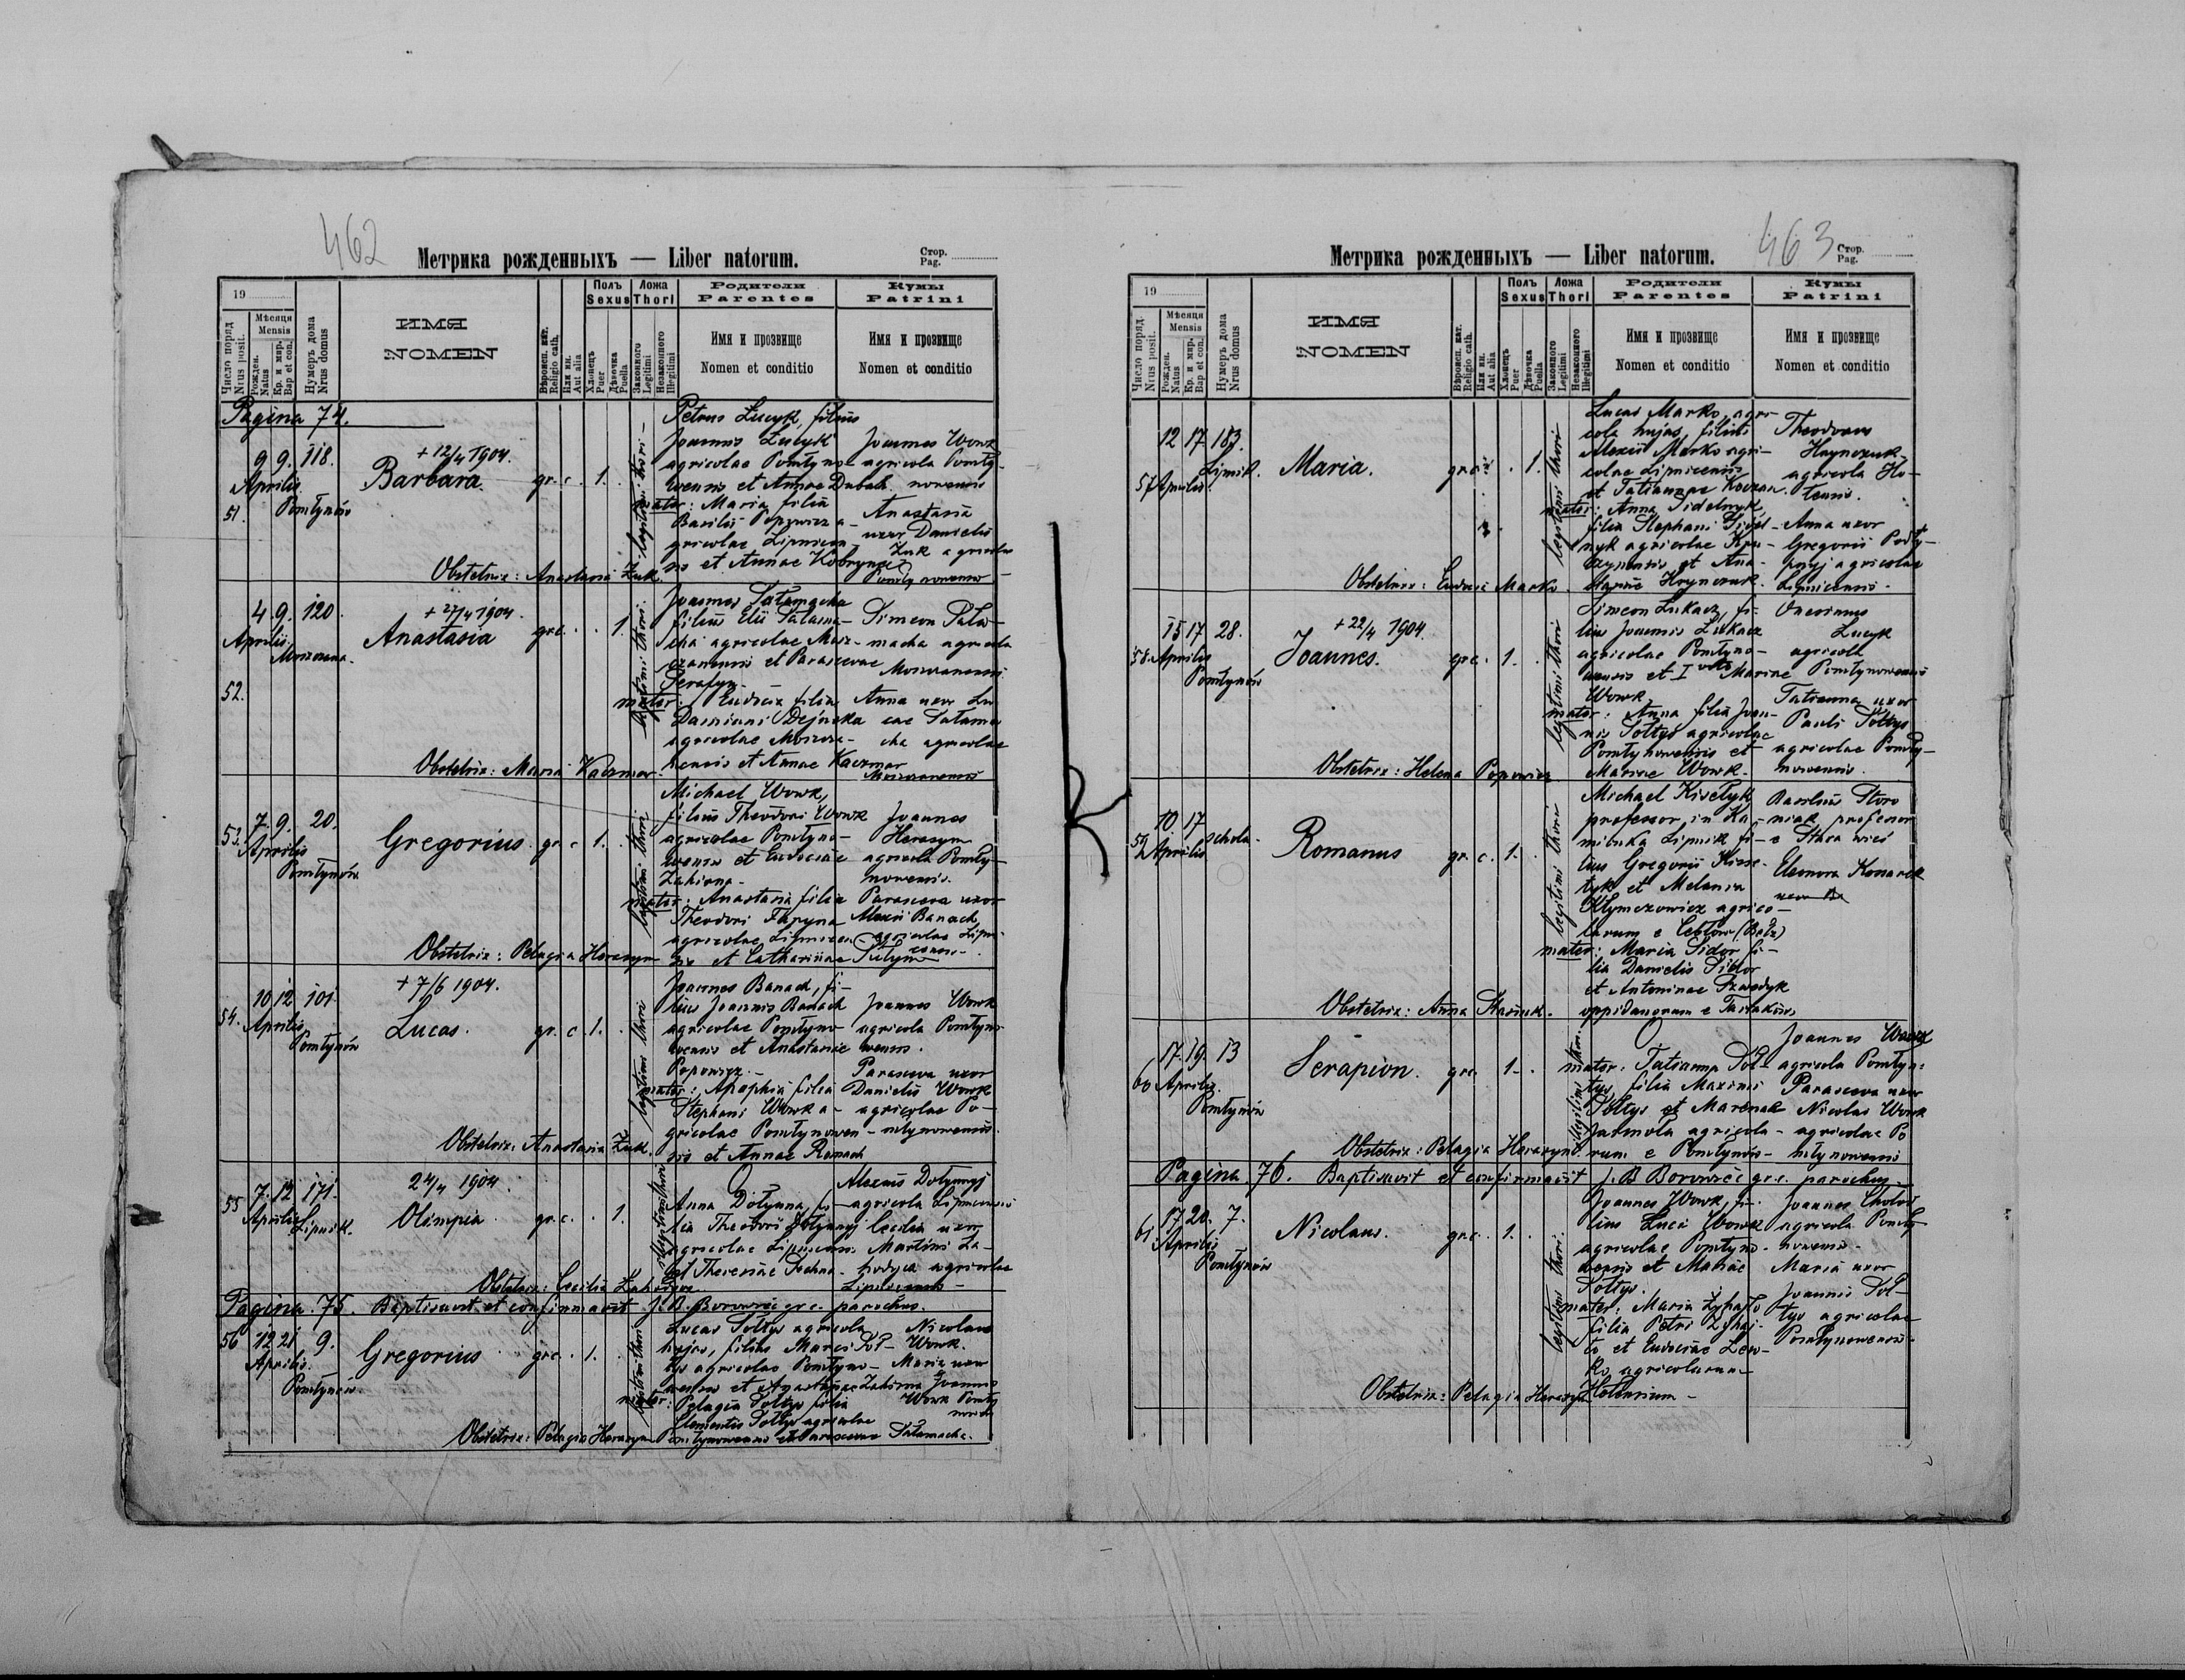 462
Метрика рожденныхъ — Liber natorum.
Стор.
Pag.
19
Число поряд.
Nrus posit.
Мѣсяця
Mensis
Рожден.
Natus
Кр. и мир.
Bap et con.
Нумеръ дома
Nrus domus
ИМЯ
NOMEN
Вѣроисп. кат.
Religio cath.
Или ин.
Aut alia
Полъ
Sexus
Хлопецъ
Puer
Дѣвочка
Puella
Ложа
Thori
Законного
Legitimi
Незаконного
Illegitimi
Родители
Parentes
Имя и прозвище
Nomen et conditio
Кумы
Patrini
Имя и прозвище
Nomen et conditio
Pagina 74.
51.
9 9. 118.
Aprilis
Pomłynów
+ 12/4 1904.
Barbara.
gr. c. 1.
legitimi thori
Petrus Łucyk, filius
Joannis Łucyk
agricolae Pomłyno-
wensis et Annae Dubak
mater: Maria filia
Basilii Popowicz a-
gricolae Lipnicen-
sis et Annae Kobryn
Joannes Wowk
agricola Pomły-
nowensis
Anastasia
uxor Danielis
Żuk agricolae
Pomłynowensis
Obstetrix: Anastasia Żuk.
52.
4 9. 120.
Aprilis
+ 27/4 1904.
Anastasia
gr.c. 1.
legitimi thori.
Joannes Tatamacha
filius Elii Tatama-
cha agricolae
et Parascevae
Serafyn.
mater: Eudocia filia
Damiani Dejneka
agricolae
censis et Annae Kaczmar
Simeon Tata-
macha agricola
Anna uxor Lu-
cae Tatama-
cha agricolae
Obstetrix: Maria Kaczmar.
53.
7. 9. 20.
Aprilis
Pomłynów
Gregorius.
gr. c. 1.
legitimi thori
Michael Wowk,
filius Theodori Wowk
agricolae Pomłyno-
wensis et Eudociae
Zahirna-
mater: Anastasia filia
Theodori Faryna
agricolae Lipnicen-
sis et Catharinae
Joannes
Herasym
agricola Pomły-
nowensis.
Parasceva uxor
Alexii Banach,
agricolae Lipni-
censis
Obstetrix: Pelagia Herasym
54.
10 12 101
Aprilis
Pomłynów
+ 7/6 1904.
Lucas.
gr. c 1.
legitimi thori
Joannes Banach, fi-
lius Joannis Banach
agricolae Pomłyno-
wensis et Anastasiae
Popowicz.-
mater: Apaphia filia
Stephani Wowk a-
gricolae Pomłynowen-
sis et Annae Banach
Joannes Wowk
agricola Pomłyno-
wensis.
Parasceva uxor
Danielis Wowk
agricolae Po-
młynowensis.
Obstetrix: Anastasia Żuk.
55
7. 12 171.
Aprilis
Lipnik.
24/4 1904
Olimpia.
gr.c. 1.
illegitimi thori
O
Anna Dołynna, fi-
lia Theodori Dołynnyj
agricolae Lipnicens.
et Theresiae
Alexius Dołynnyj
agricola Lipnicensis
Cecilia uxor
Martini Za-
hodyca agricolae
Lipnicensis-
Obstetrix: Cecilia
Pagina 75. Baptisavit et confirmavit J. B. Borowiec gr c. parochus.
56
12 21 9.
Aprilis.
Pomłynów
Gregorius
gr.c. 1.
legitimi thori
Lucas Sołtys agricola
hujas, filius Marci Soł-
tys agricolae Pomłyno-
wensis et Anastasiae Zahirna
mater: Pelagia Sołtys filia
Clementis Sołtys agricolae
Pomłynowensis et Parascevae Tatamacha.
Nicolaus
Wowk.
Maria uxor
Joannis
Wowk Pomły-
nowen
Obstetrix: Pelagia Herasym
463
Метрика рожденныхъ — Liber natorum.
Стор.
Pag.
19
Число поряд.
Nrus posit.
Мѣсяця
Mensis
Рожден.
Natus
Кр. и мир.
Bap et con.
Нумеръ дома
Nrus domus
ИМЯ
NOMEN
Вѣроисп. кат.
Religio cath.
Или ин.
Aut alia
Полъ
Sexus
Хлопецъ
Puer
Дѣвочка
Puella
Ложа
Thori
Законного
Legitimi
Незаконного
Illegitimi
Родители
Parentes
Имя и прозвище
Nomen et conditio
Кумы
Patrini
Имя и прозвище
Nomen et conditio
57
12 17 183.
Aprilis.
Lipnik.
Maria.
gr.c. 1.
legitimi thori
Lucas Marko, agri-
cola hujas, filius
Alexii Marko agri-
colae Lipnicensis
et Tatiannae
mater: Anna Sidelnyk,
filia Stephani Sidel-
nyk agricolae
et Ana-
Hrynczuk.
Theodorus
Hrynczuk
agricola Ho-
tensis.
Anna uxor
Gregorii
agricolae
Lipnicensis.
Obstetrix: Eudocia Marko.
58.
15 17 28.
Aprilis
Pomłynów
+ 22/4 1904.
Joannes.
gr.c. 1.
legitimi thori
Simeon Łukacz, fi-
lius Joannis Łukacz
agricolae Pomłyno-
wensis et I voto Marinae
Wowk.
mater: Anna filia Joan-
nis Sołtys agricolae
Pomłynowensis et
Marinae Wowk.
Łucyk
agricola
Pomłynowensis
Tatianna uxor
Pauli Sołtys
agricolae Pomły-
nowensis.
Obstetrix: Helena Popowicz
59
10. 17 schola.
Aprilis
Romanus
gr. c. 1.
legitimi thori
Michael Kisełyk
professor in Ka-
mionka Lipnik fi-
lius Gregorii Kise-
łyk et Melania
Klymczowicz agrico-
larum e
mater: Maria Sidor fi-
lia Danielis Sidor
et Antoninae
oppidanorum e Tartaków
Basilius
professor
e Stara wieś
Eleonora Konarek
uxor
Obstetrix: Anna Stasiuk.
60
17. 19. 13
Aprilis.
Pomłynów
Serapion.
gr.c 1.
illegitimi thori.
O
mater: Tatianna Soł-
tys filia Maximi
Sołtys et Marenae
Jarmoła agricola-
rum e Pomłynów-
Joannes Wowk
agricola Pomłyn:
Parasceva uxor
Nicolai Wowk
agricolae Po
młynowensis
Obstetrix: Pelagia Herasym.
Pagina 76. Baptisavit et confirmavit J. B Borowiec gr.c. parochus.
61
17 20. 7.
Aprilis
Pomłynów
Nicolaus.
gr.c. 1.
legitimi thori.
Joannes Wowk, fi-
lius Lucae Wowk
agricolae Pomłyno-
wensis et Mariae
Sołtys.
mater: Maria
filia Petri
et Eudociae Lew-
ko, agricolarum
Hotensium-
Joannes
agricola Pomły-
nowensis-
Maria uxor
Joannis Soł-
tys agricolae
Pomłynowensis-
Obstetrix: Pelagia Herasym